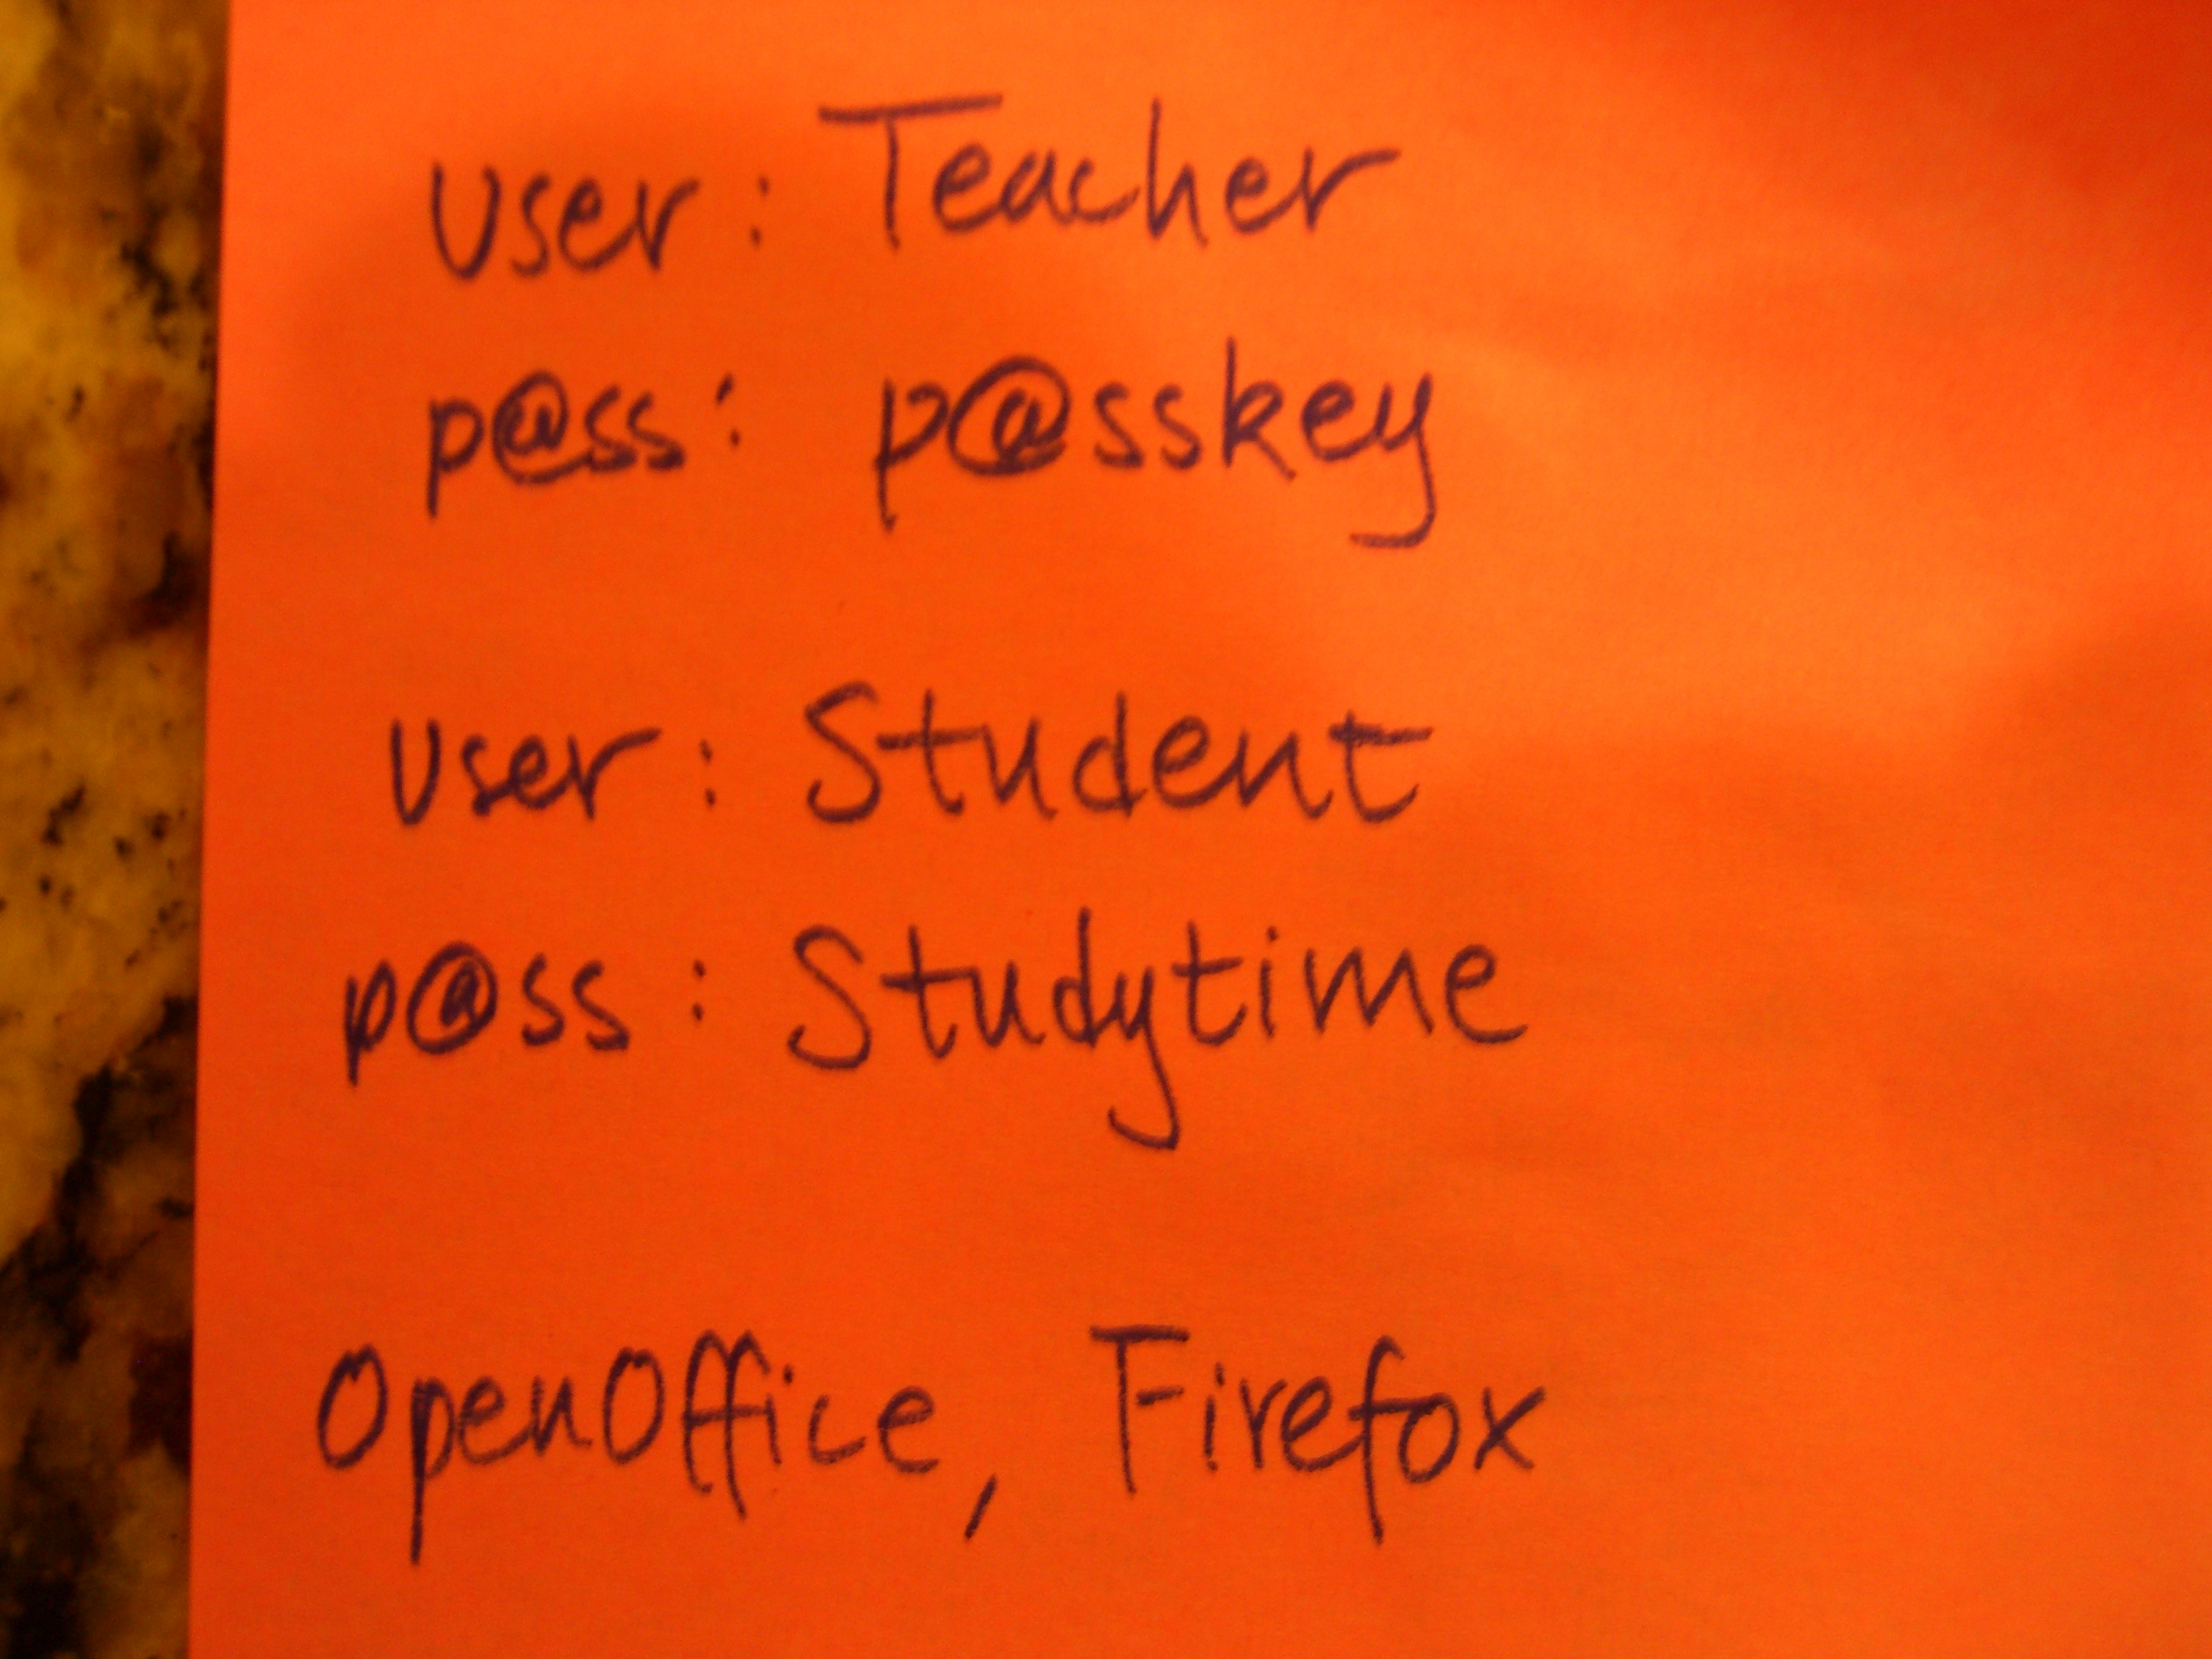 User: Teacher
p@ss: p@sskey
User: Student
p@ss: Studytime
OpenOffice, Firefox